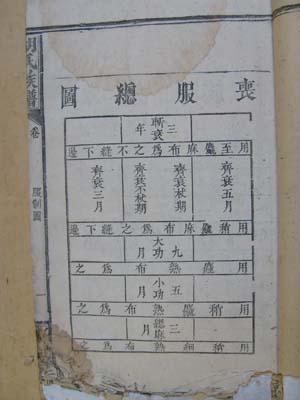 喪服總圖
斬衰三年
用至麤麻布爲之不縫下邊
齊衰五月
齊衰杖期
齊衰不杖期
齊衰三月
用稍麤麻布爲之縫下邊
大功九月
用麤熟布爲之
小功五月
用稍麤熟布爲之
緦麻三月
用稍細熟布爲之
胡氏族譜
卷
服制圖